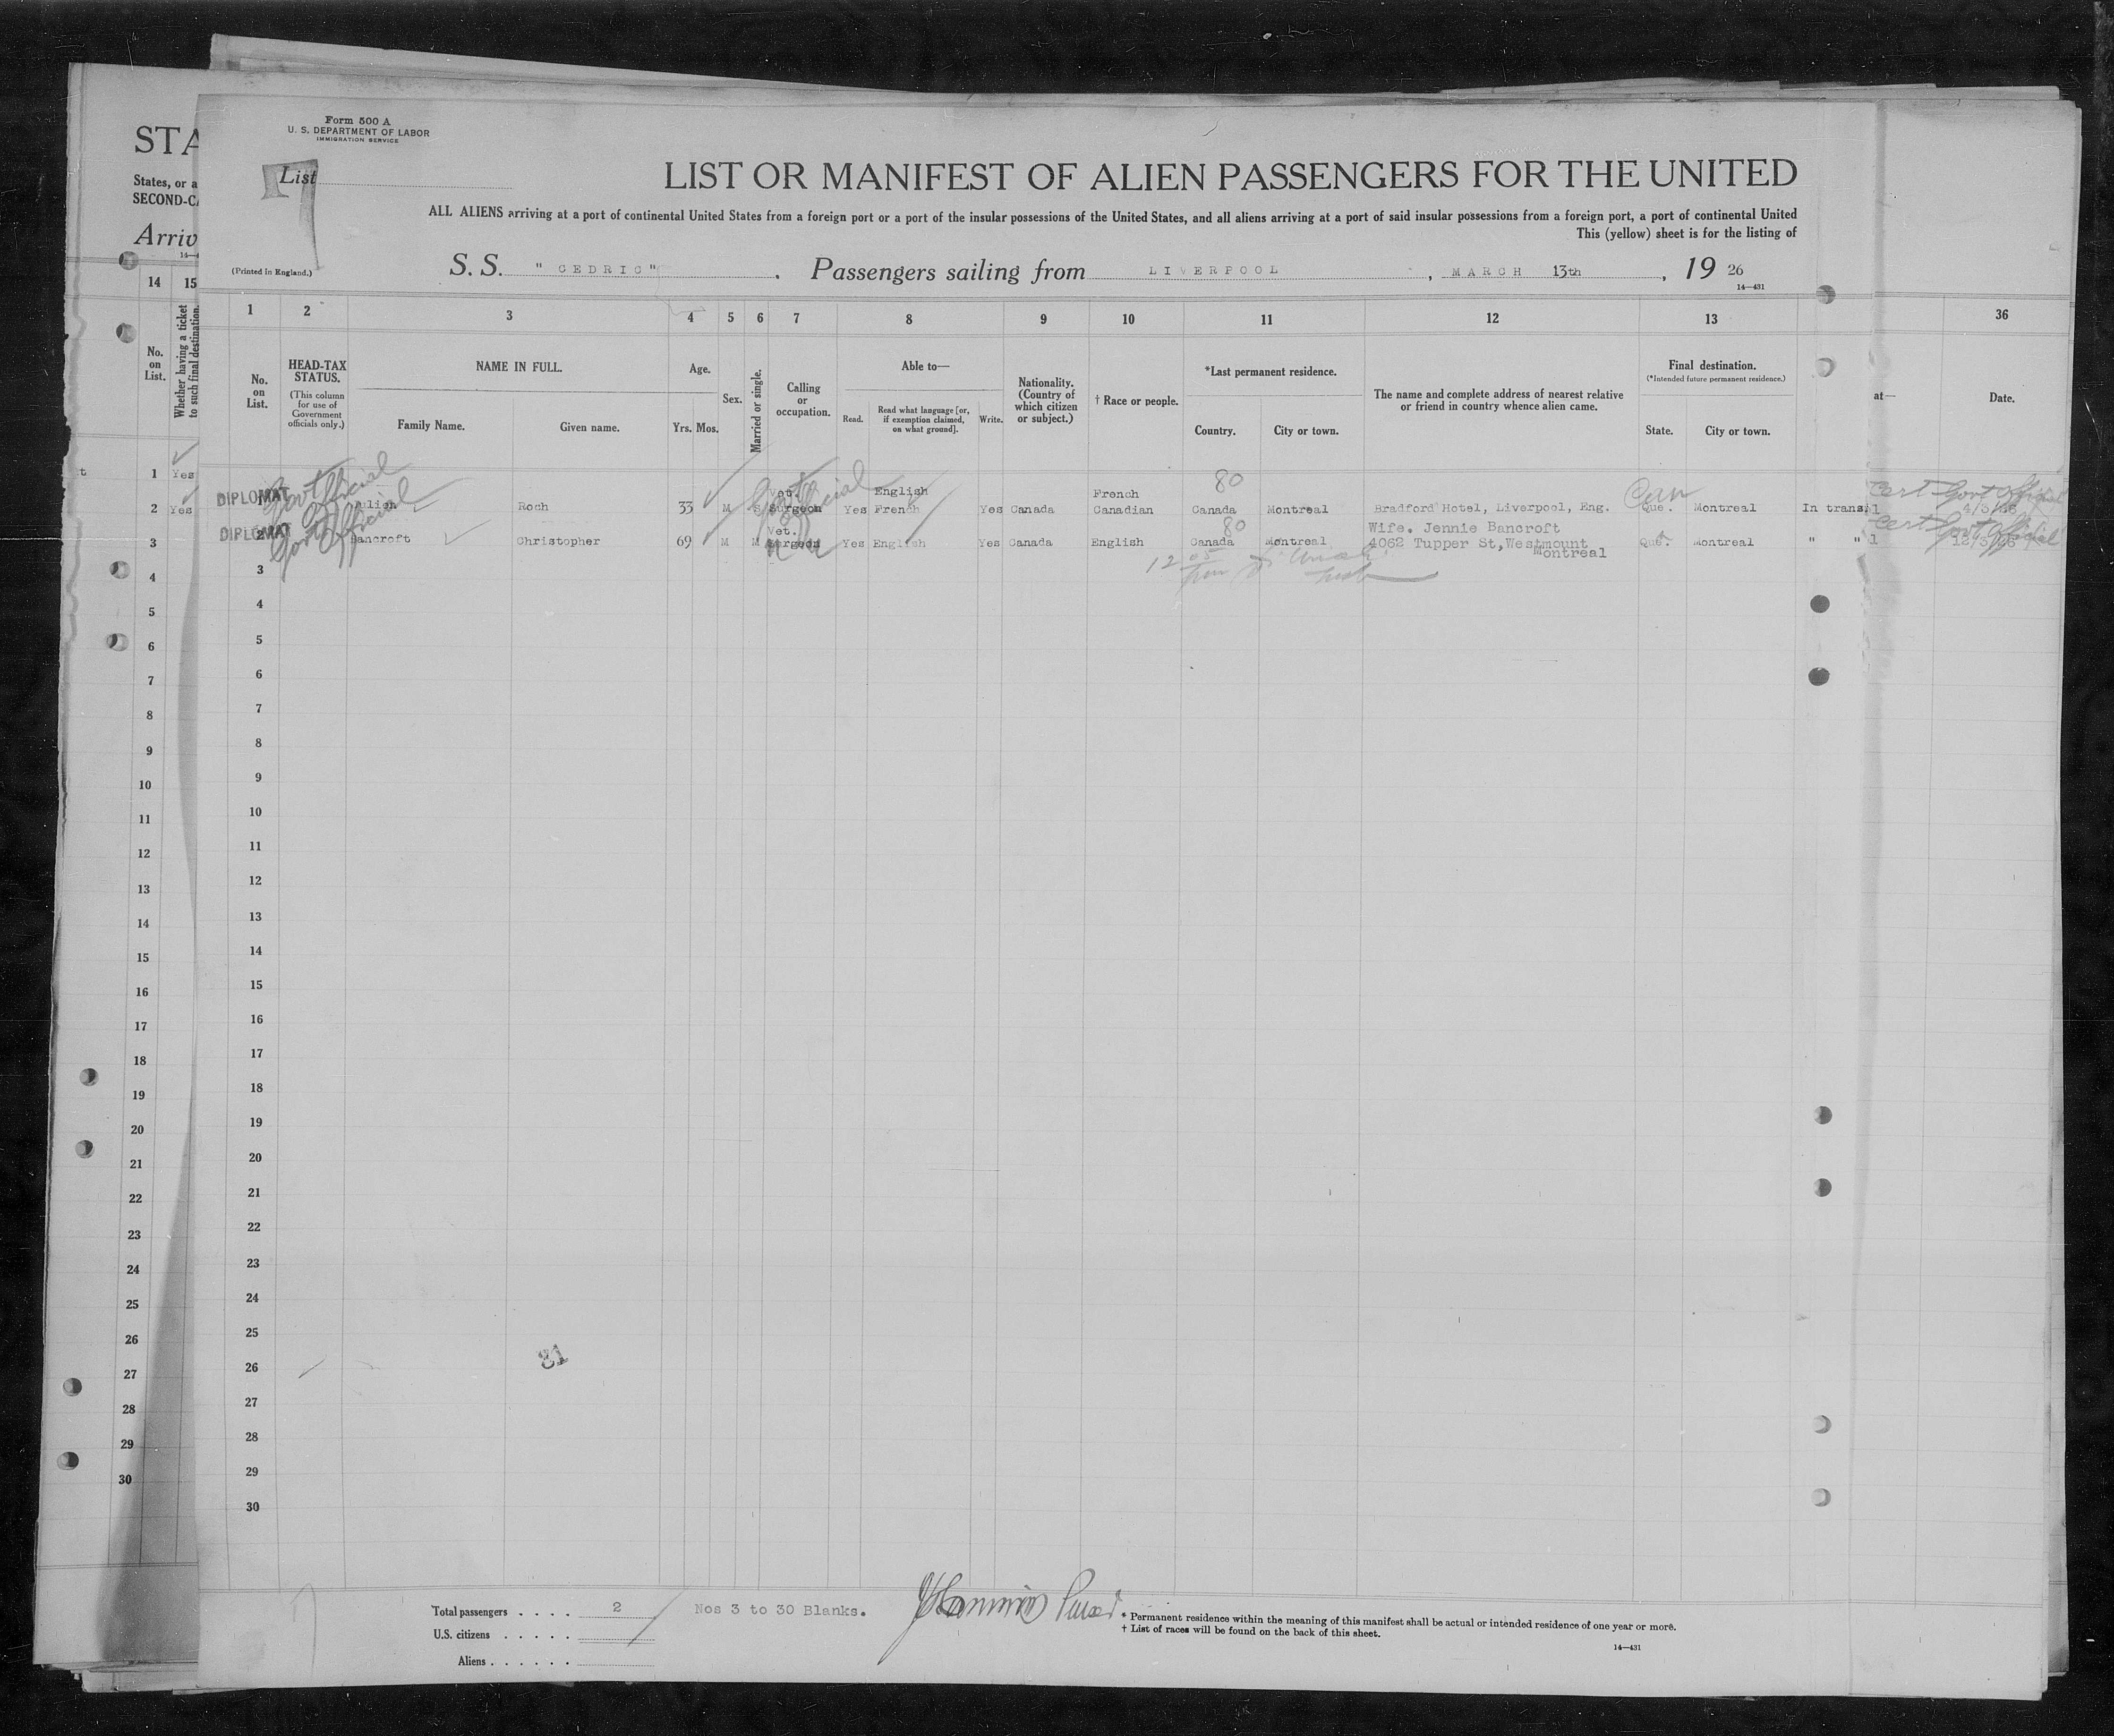 Form 500 A
U. S. DEPARTMENT OF LABOR
IMMIGRATION SERVICE
STA
List
7
LIST OR MANIFEST OF ALIEN PASSENGERS FOR THE UNITED
States, or a
SECOND-CA
ALL ALIENS arriving at a port of continental United States from a foreign port or a port of the insular possessions of the United States, and all aliens arriving at a port of said insular possessions from a foreign port, a port of continental United
This (yellow) sheet is for the listing of
Arriv
(Printed in England.)
S. S. "CEDRIC", Passengers sailing from LIVERPOOL, MARCH 13th, 19 26
14—431
14 15
1 2 3 4 5 6 7 8 9 10 11 12 13 36
No. on List.
Whether having a ticket to such final destination.
No. on List.
HEAD-TAX STATUS.
(This column for use of Government officials only.)
NAME IN FULL.
Family Name. Given name.
Age.
Yrs. Mos.
Sex.
Married or single.
Calling or occupation.
Able to—
Read. Read what language [or, if exemption claimed, on what ground]. Write.
Nationality. (Country of which citizen or subject.)
† Race or people.
*Last permanent residence.
Country. City or town.
The name and complete address of nearest relative or friend in country whence alien came.
Final destination.
(*Intended future permanent residence.)
State. City or town.
at—
Date.
1 Yes
2 Yes
DIPLOMAT Gov't Official Roch 33 M S Vet. Surgeon Yes English French Yes Canada French Canadian 80 Canada Montreal Bradford Hotel, Liverpool, Eng. Can Que. Montreal In transi
Cert Gov't Official
DIPLOMAT 2 Gov't Official Bancroft Christopher 69 M M Vet. Surgeon Yes English Yes Canada English 80 Canada Montreal Wife. Jennie Bancroft
4062 Tupper St, Westmount
Montreal
Que. Montreal " "
Cert Gov't Official
3
4
5
6
7
8
9
10
11
12
13
14
15
16
17
18
19
20
21
22
23
24
25
26
27
28
29
30
3
4
5
6
7
8
9
10
11
12
13
14
15
16
17
18
19
20
21
22
23
24
25
26
27
28
29
30
31
Total passengers . . . . 2
U.S. citizens . . . . .
Aliens . . . . . .
Nos 3 to 30 Blanks.
* Permanent residence within the meaning of this manifest shall be actual or intended residence of one year or more.
† List of races will be found on the back of this sheet.
14—431